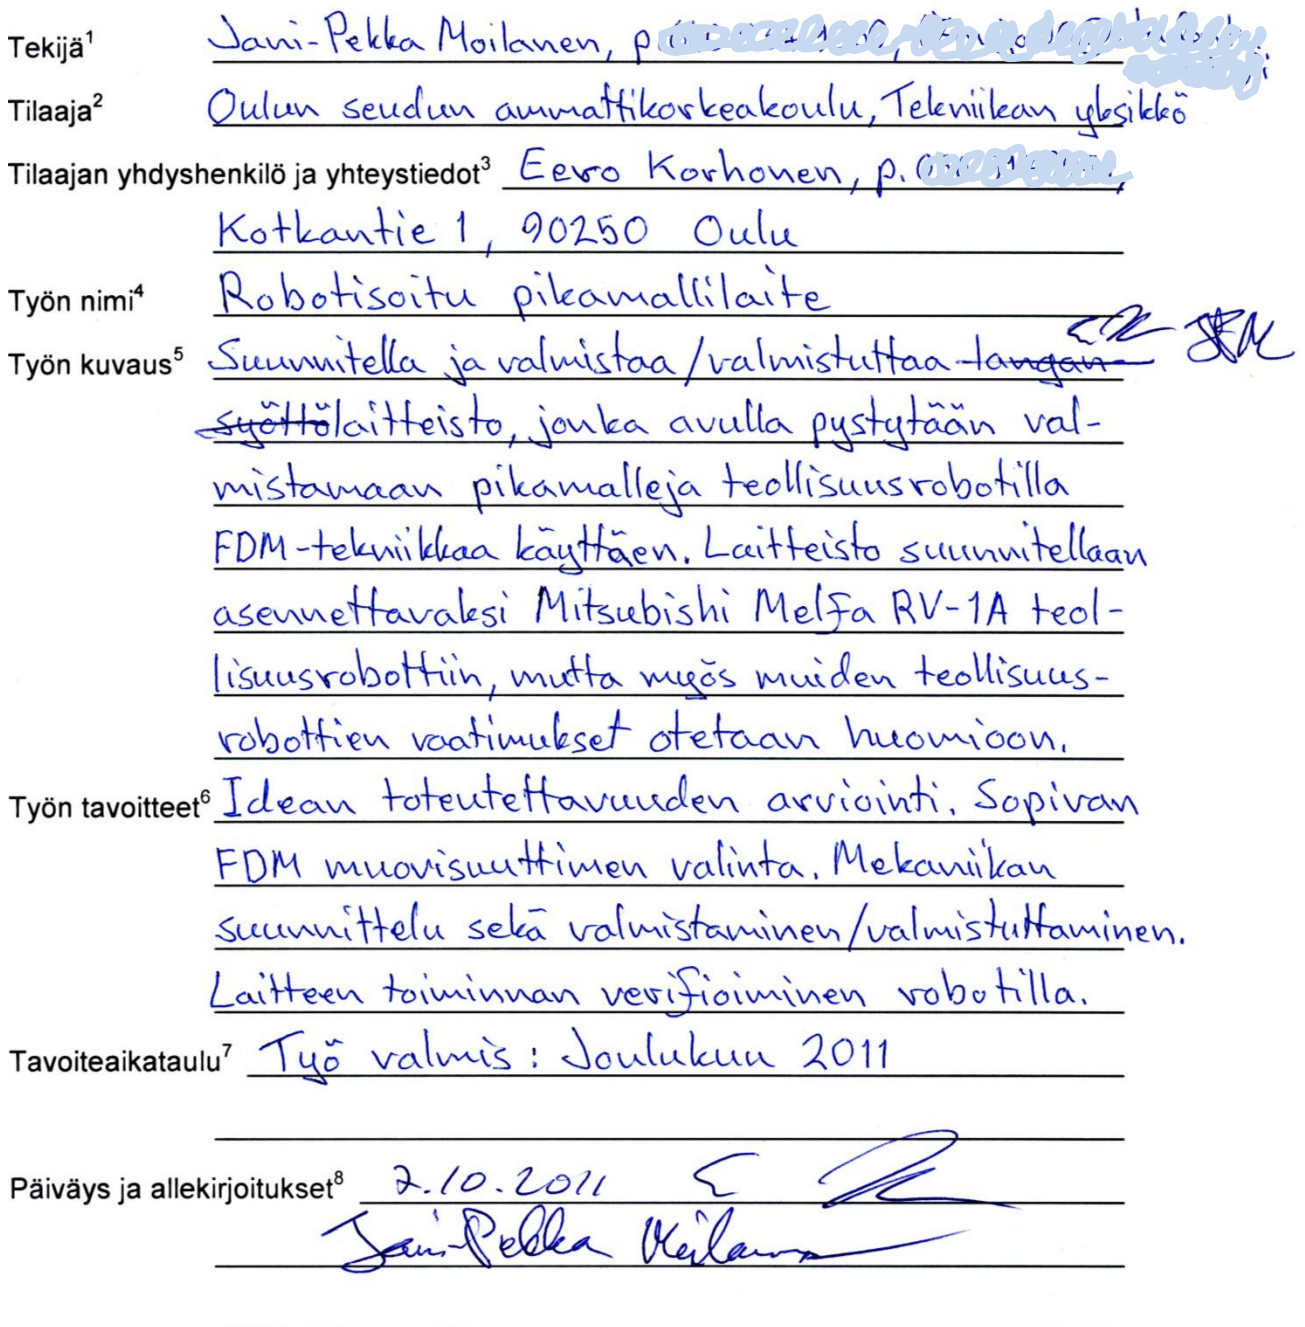 Tekijä¹ Jani-Pekka Moilanen, p.
Tilaaja² Oulun seudun ammattikorkeakoulu, Tekniikan yksikkö
Tilaajan yhdyshenkilö ja yhteystiedot³ Eero Korhonen, p.
Kotkantie 1, 90250 Oulu
Työn nimi⁴ Robotisoitu pikamallilaite
Työn kuvaus⁵ Suunnitella ja valmistaa/valmistuttaa langan
syöttölaitteisto, jonka avulla pystytään val-
mistamaan pikamalleja teollisuusrobotilla
FDM-tekniikkaa käyttäen. Laitteisto suunnitellaan
asennettavaksi Mitsubishi Melfa RV-1A teol-
lisuusrobottiin, mutta myös muiden teollisuus-
robottien vaatimukset otetaan huomioon.
Työn tavoitteet⁶ Idean toteutettavuuden arviointi. Sopivan
FDM muovisuuttimen valinta. Mekaniikan
suunnittelu sekä valmistaminen/valmistuttaminen.
Laitteen toiminnan verifioiminen robotilla.
Tavoiteaikataulu⁷ Työ valmis: Joulukuu 2011
Päiväys ja allekirjoitukset⁸ 2.10.2011
Jani-Pekka Moilanen